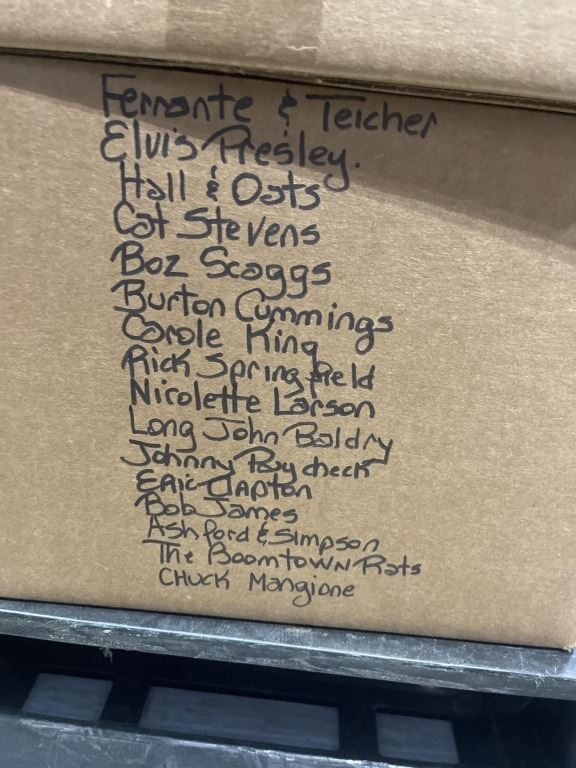 Ferrante & Teicher
Elvis Presley.
Hall & Oats
Cat Stevens
Boz Scaggs
Burton Cummings
Carole King
Rick Springfield
Nicolette Larson
Long John Baldry
Johnny Paycheck
Eric Clapton
Bob James
Ashford & Simpson
The Boomtown Rats
Chuck Mangione